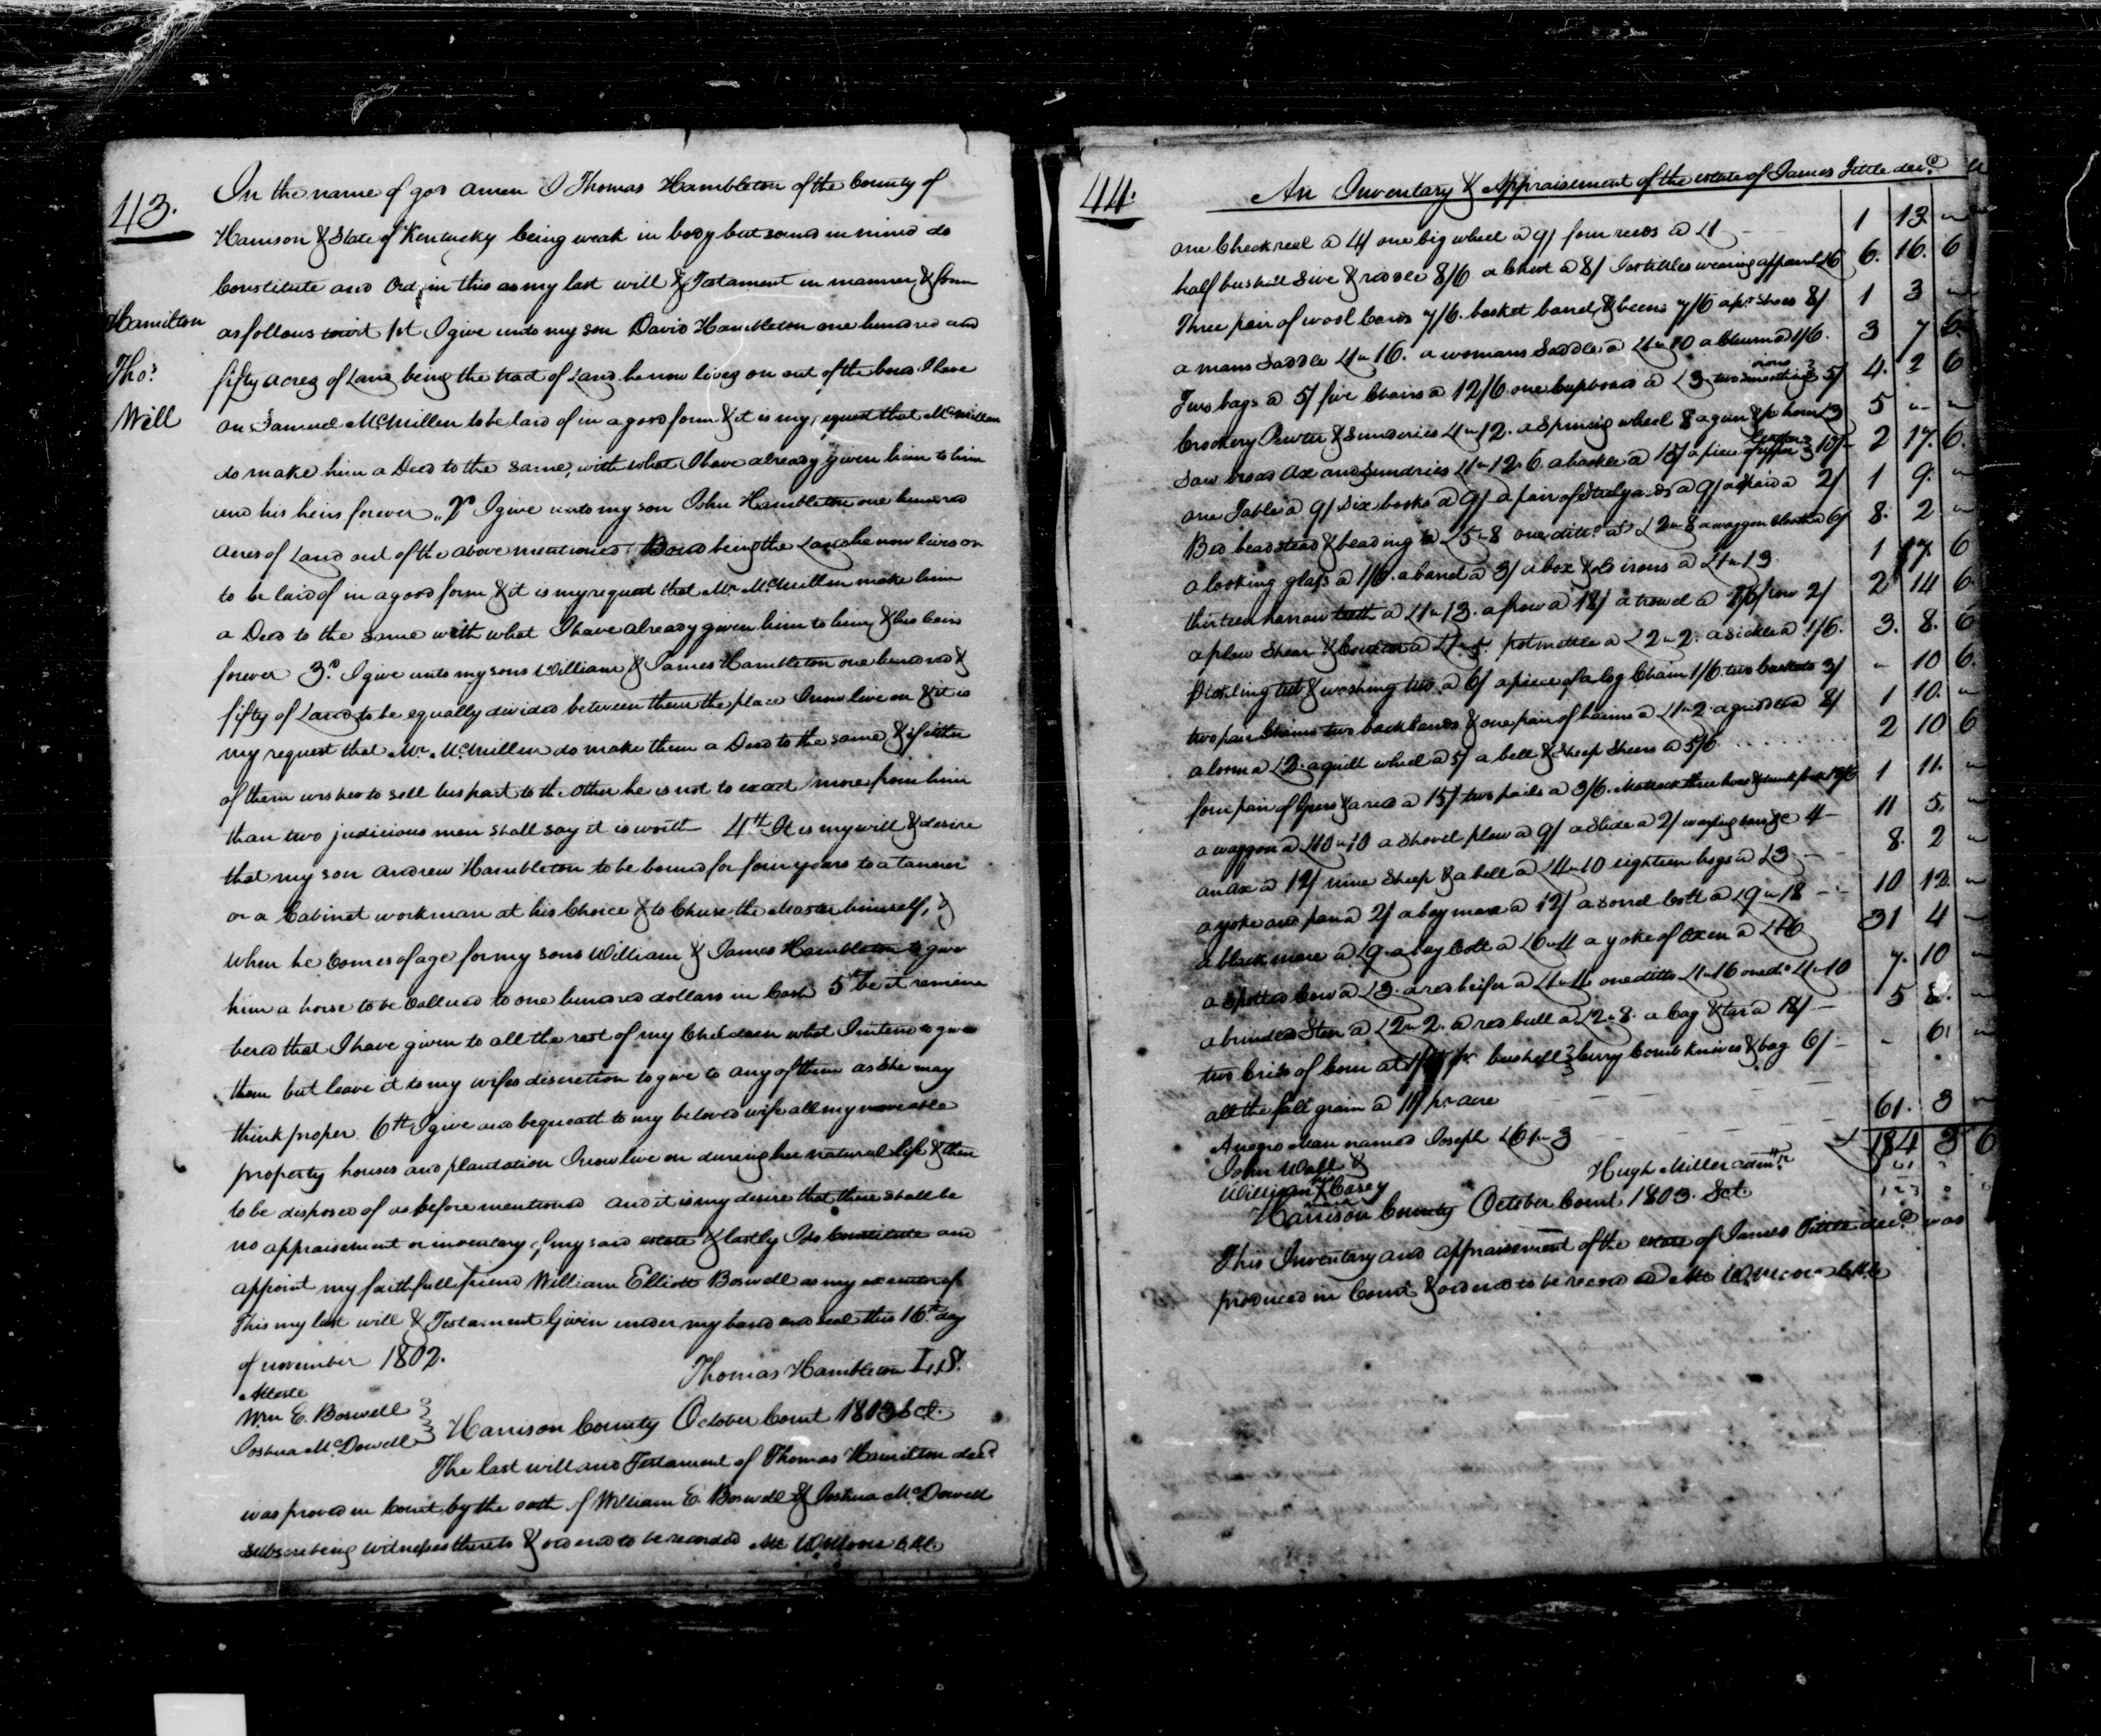 43.
In the name of god amen I Thomas Hambleton of the County of
Harrison & State of Kentucky being weak in body but sound in mind do
Constitute and Ordain this as my last will & Testament in manner & form
Hamilton
Thos.
Will
as follows towit 1st I give unto my son David Hambleton one hundred and
fifty acres of Land being the tract of Land he now lives on out of the bond I have
on Samuel McMillen to be laid of in a good form & it is my request that McMillen
do make him a Deed to the same, with what I have already given him to him
and his heirs forever „ 2d I give unto my son John Hambleton one hundred
acres of Land out of the above mentioned Bond being the Land he now lives on
to be laid of in a good form & it is my request that Mr. McMillen make him
a Deed to the same with what I have already given him to him & his heirs
forever 3d. I give unto my sons William & James Hambleton one hundred &
fifty of Land to be equally divided between them the place I now live on & it is
my request that Mr. McMillen do make them a Deed to the same & if either
of them wishes to sell his part to the other he is not to exact more from him
than two judicious men shall say it is worth 4th It is my will & desire
that my son Andrew Hambleton to be bound for four years to a tanner
or a Cabinet workman at his Choice & to Chuse the Master himself, &
when he Comes of age for my sons William & James Hambleton to give
him a horse to be vallued to one hundred dollars in Cash 5th be it remem
bered that I have given to all the rest of my Children what I intend to give
them but leave it to my wifes discretion to give to any of them as She may
think proper. 6th I give and bequeath to my beloved wife all my moveable
property houses and plantation I now live on during her natural life & then
to be disposed of as before mentioned and it is my desire that there shall be
no appraisement or inventory of my said estate & lastly I do Constitute and
appoint my faithfull friend William Elliott Boswell as my executor of
This my last will & Testament Given under my hand and seal this 16th day
of november 1802.
Thomas Hambleton L.S.
Atteste
Wm E. Boswell
Joshua McDowell
Harrison County October Court 1803 Sct.
The last will and Testament of Thomas Hamilton decd
was proved in Court by the oath of William E. Boswell & Joshua McDowell
subscribing witnesses thereto & ordered to be recorded Att W Moore C.H.C
44.
An Inventory & Appraisement of the estate of James Tittle decd.
one Check reel a 4/ one big wheel a 9/ four reeds a £1 1 13 "
half bushell Sive & riddle 8/6 a Chest a 8/ Jas tittles wearing apparel £6 6. 16. 6
Three pair of wool Cards 7/6. basket barrel & beens 7/6 a pr. Shoes 8/ 1 3 "
a mans Saddle £1"16. a womans Saddle a £1"10 a Churn a 1/6. 3 7 6.
Two bags a 5/ five Chairs a 12/6 one Cupboard a £3 two smoothing irons 5/ 4. 2 6
Crockery Pewter & Sunderies £1"12. a Spining wheel 8 a gun & p horn £3 5 " "
Saw broad ax and Sundries £1"12"6. a hackle a 15/ a piece of upper Leather 10/ 2 17. 6.
one Table a 9/ six books a 9/ a pair of Steelyards a 9/ a a 2/ 1 9. "
Bed beadstead & beading a £5"8 one ditto. at £2"8 a waggon Cloth a 6/ 8. 2 "
a looking glass a 1/6. a barrel a 3/ a box & old irons a £1"13. 1 17. 6
thirteen harrow teeth a £1"13. a frow a 18/ a trowel a 2/
a plow Shear & Coulter a pot mettle a £2"2. a sickle a 1/6. 3. 8. 6
Pickling tub & washing tub a 6/ a piece of a log Chain 1/6. two baskets 3/ " 10 6.
two pair Chains two backbands & one pair of haims a £1"2. a griddle a 8/ 1 10. "
a loom a £2. a quill wheel a 5/ a bell & Sheep Shears a 5/6 2 10 6
four pair of Geers & a reed a 15/ two pails a 3/6. Mattock three hoes & 12/6 1 11. "
a waggon a £10"10 a Shovel plow a 9/ a Slide a 2/ 4 11 5. "
an ax a 12/ nine Sheep & a bell a £4"10 eighteen hogs a £3 8. 2 "
a yoke and a 2/ a bay mare a 12/ a sorrel Colt a £9"18 10 12. "
a black mare a £9. a bay Colt a £6"4 a yoke of Oxen a £16 31 4 "
a Spotted Cow a £3. a red heifer a £1"4 one ditto £1"16 one do £1"10 7. 10 "
a brindled Steer a £2"2. a red bull a £2"8. a bag & tar a 18/ 5 8. "
two Cribs of Corn at pr bushell Curry Comb Knives & bag 6/ " 6. "
all the fall grain a 11/ pr acre
A negro Man named Joseph £61"3 61. 3 "
£184 3 6
John Wall &
William his Casey
mark
Hugh Miller admr.
Harrison County October Court 1803. Sct.
This Inventory and appraisement of the estate of James Tittle decd. was
produced in Court & ordered to be record ed Att W Moore C.H.C